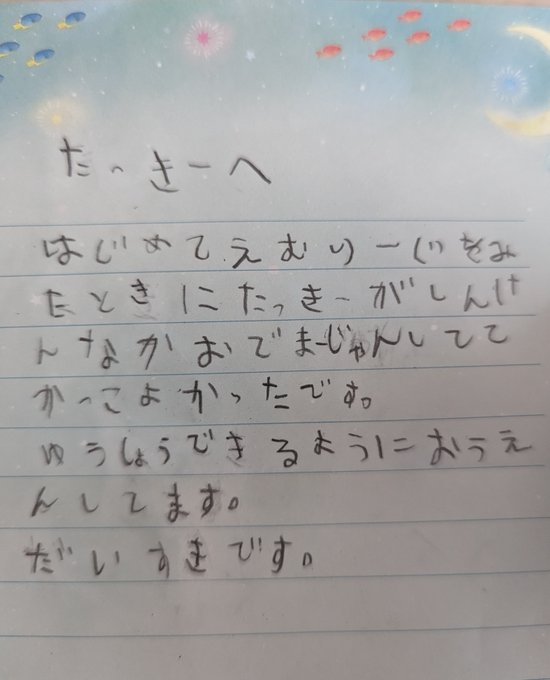 たっきーへ
はじめてえむりーぐをみ
たときにたっきーがしんけ
んなかおでまーじゃんしてて
かっこよかったです。
ゆうしょうできるようにおうえ
んしてます。
だいすきです。